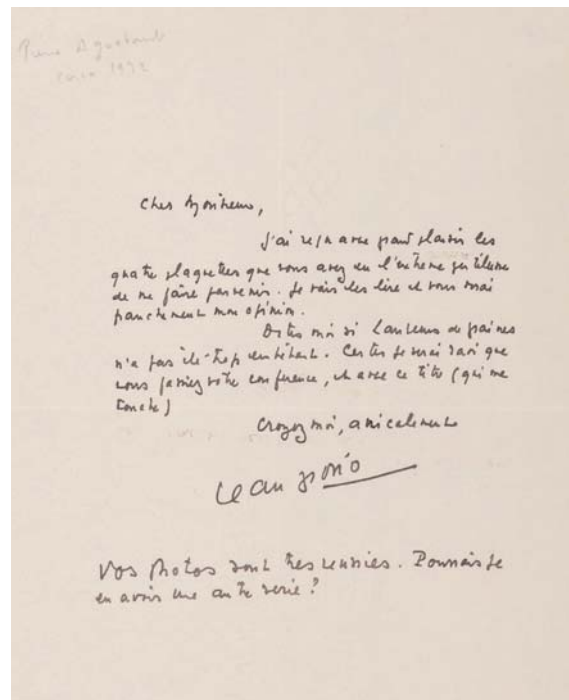 circa 1972
Cher Monsieur,
J'ai reçu avec grand plaisir les
quatre plaquettes que vous avez eu l'extrême gentillesse
de me faire parvenir. Je vais les lire et vous dirai
franchement mon opinion.
Dites moi si Lanceurs de graines
n'a pas été trop embêtant. Certes je serai ravi que
vous fassiez votre conférence, et avec ce titre (qui me
touche)
Croyez moi, amicalement
Jean Giono
Vos photos sont très réussies. Pourrais je
en avoir une autre série ?